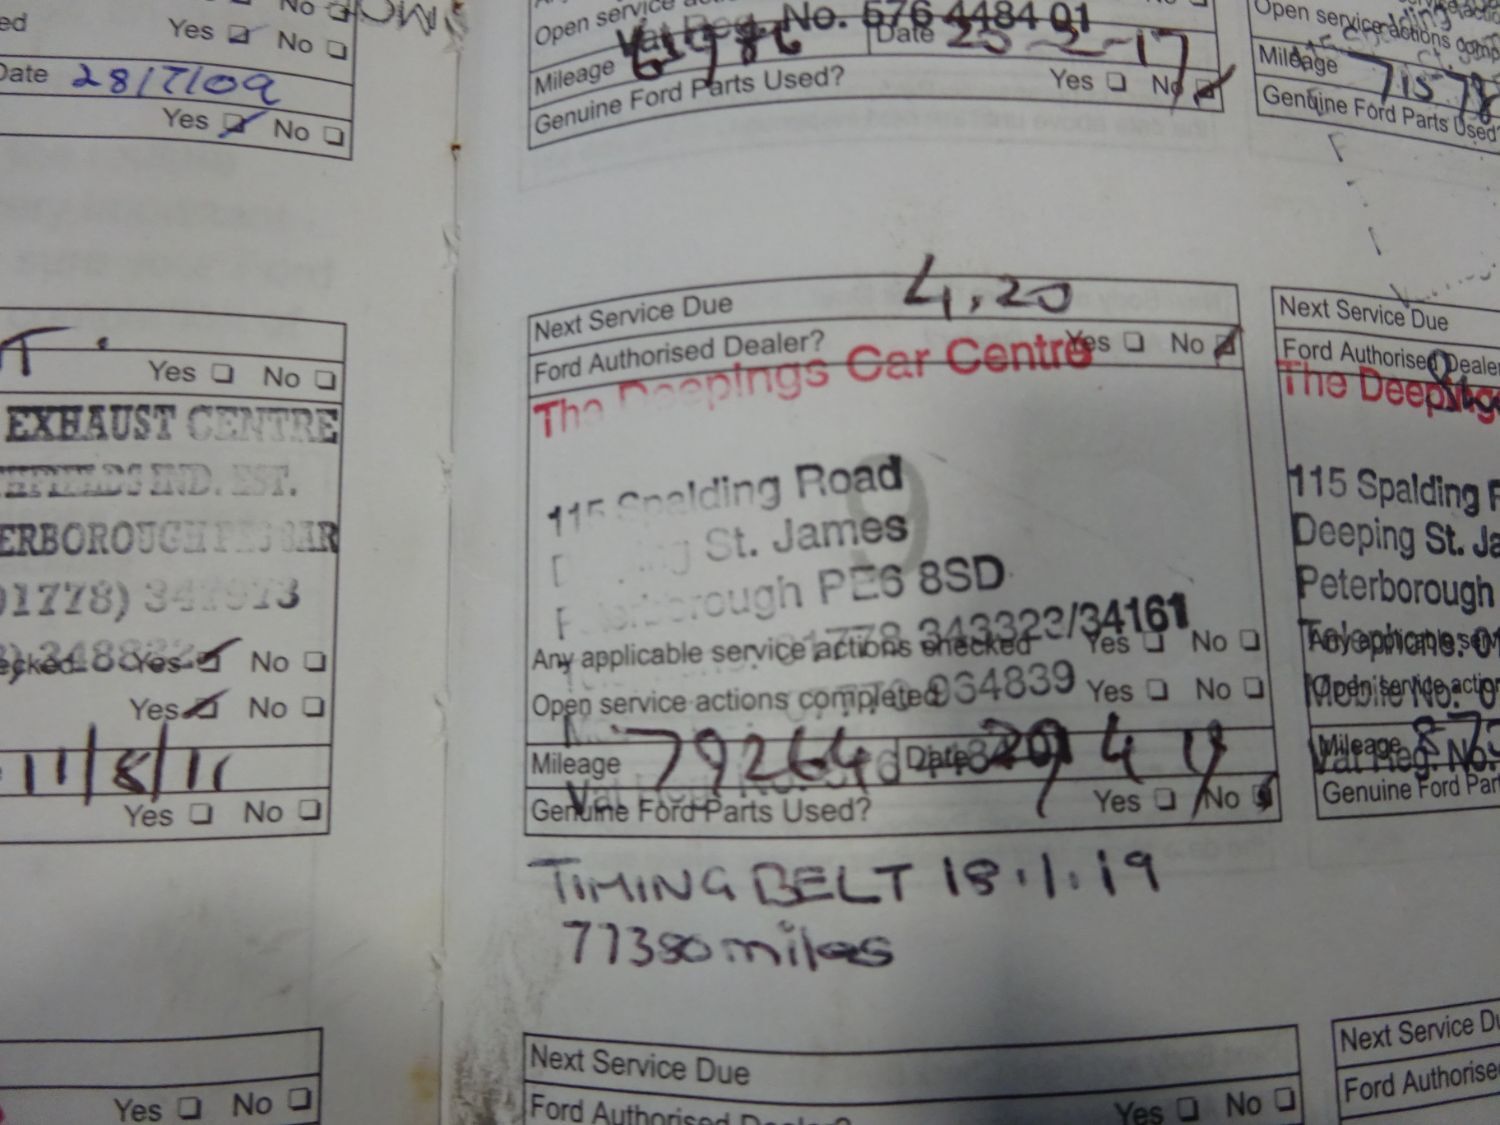 No
Yes No
Date 28/7/09
Yes No
Yes No
EXHAUST CENTRE
IND. EST.
Yes No
Yes No
11/8/11
Yes No
Yes No
Open service
Vat Reg. No. 576 4484 01
Mileage Date 23-2-17
Genuine Ford Parts Used? Yes No
Next Service Due 4.20
Ford Authorised Dealer? Yes No
The Deepings Car Centre
115 Spalding Road
St. James
Peterborough PE6 8SD
01778 343323/34161
Any applicable service actions checked Yes No
Open service actions completed Yes No
964839
Mileage 79264 Date 29 4 19
Genuine Ford Parts Used? Yes No
TIMING BELT 18.1.19
77380 miles
Next Service Due
Ford Authorised Dealer?
Yes No
Open service actions
Mileage 71578
Genuine Ford Parts Used?
Next Service Due
Ford Authorised Dealer
The Deepings
115 Spalding
Deeping St. Ja
Peterborough
Telephone. 0
Mobile No.
Mileage
Vat Reg. No.
Genuine Ford Par
Next Service Du
Ford Authorise